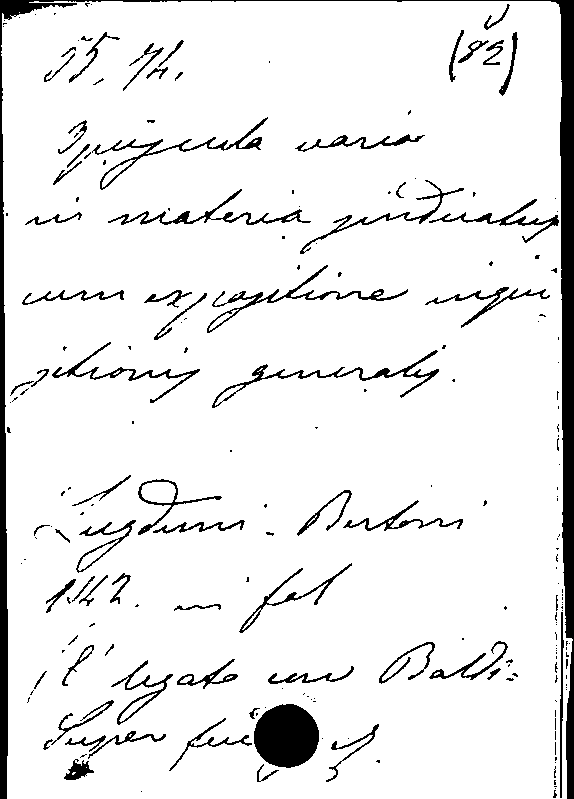 55. 74. (82)
Opuscula varia
in materia sindicatus
cum expositione inqui
sitionis generalis.
Lugduni - Bertoni
1542. in fol
(È legato con Baldi-
Super